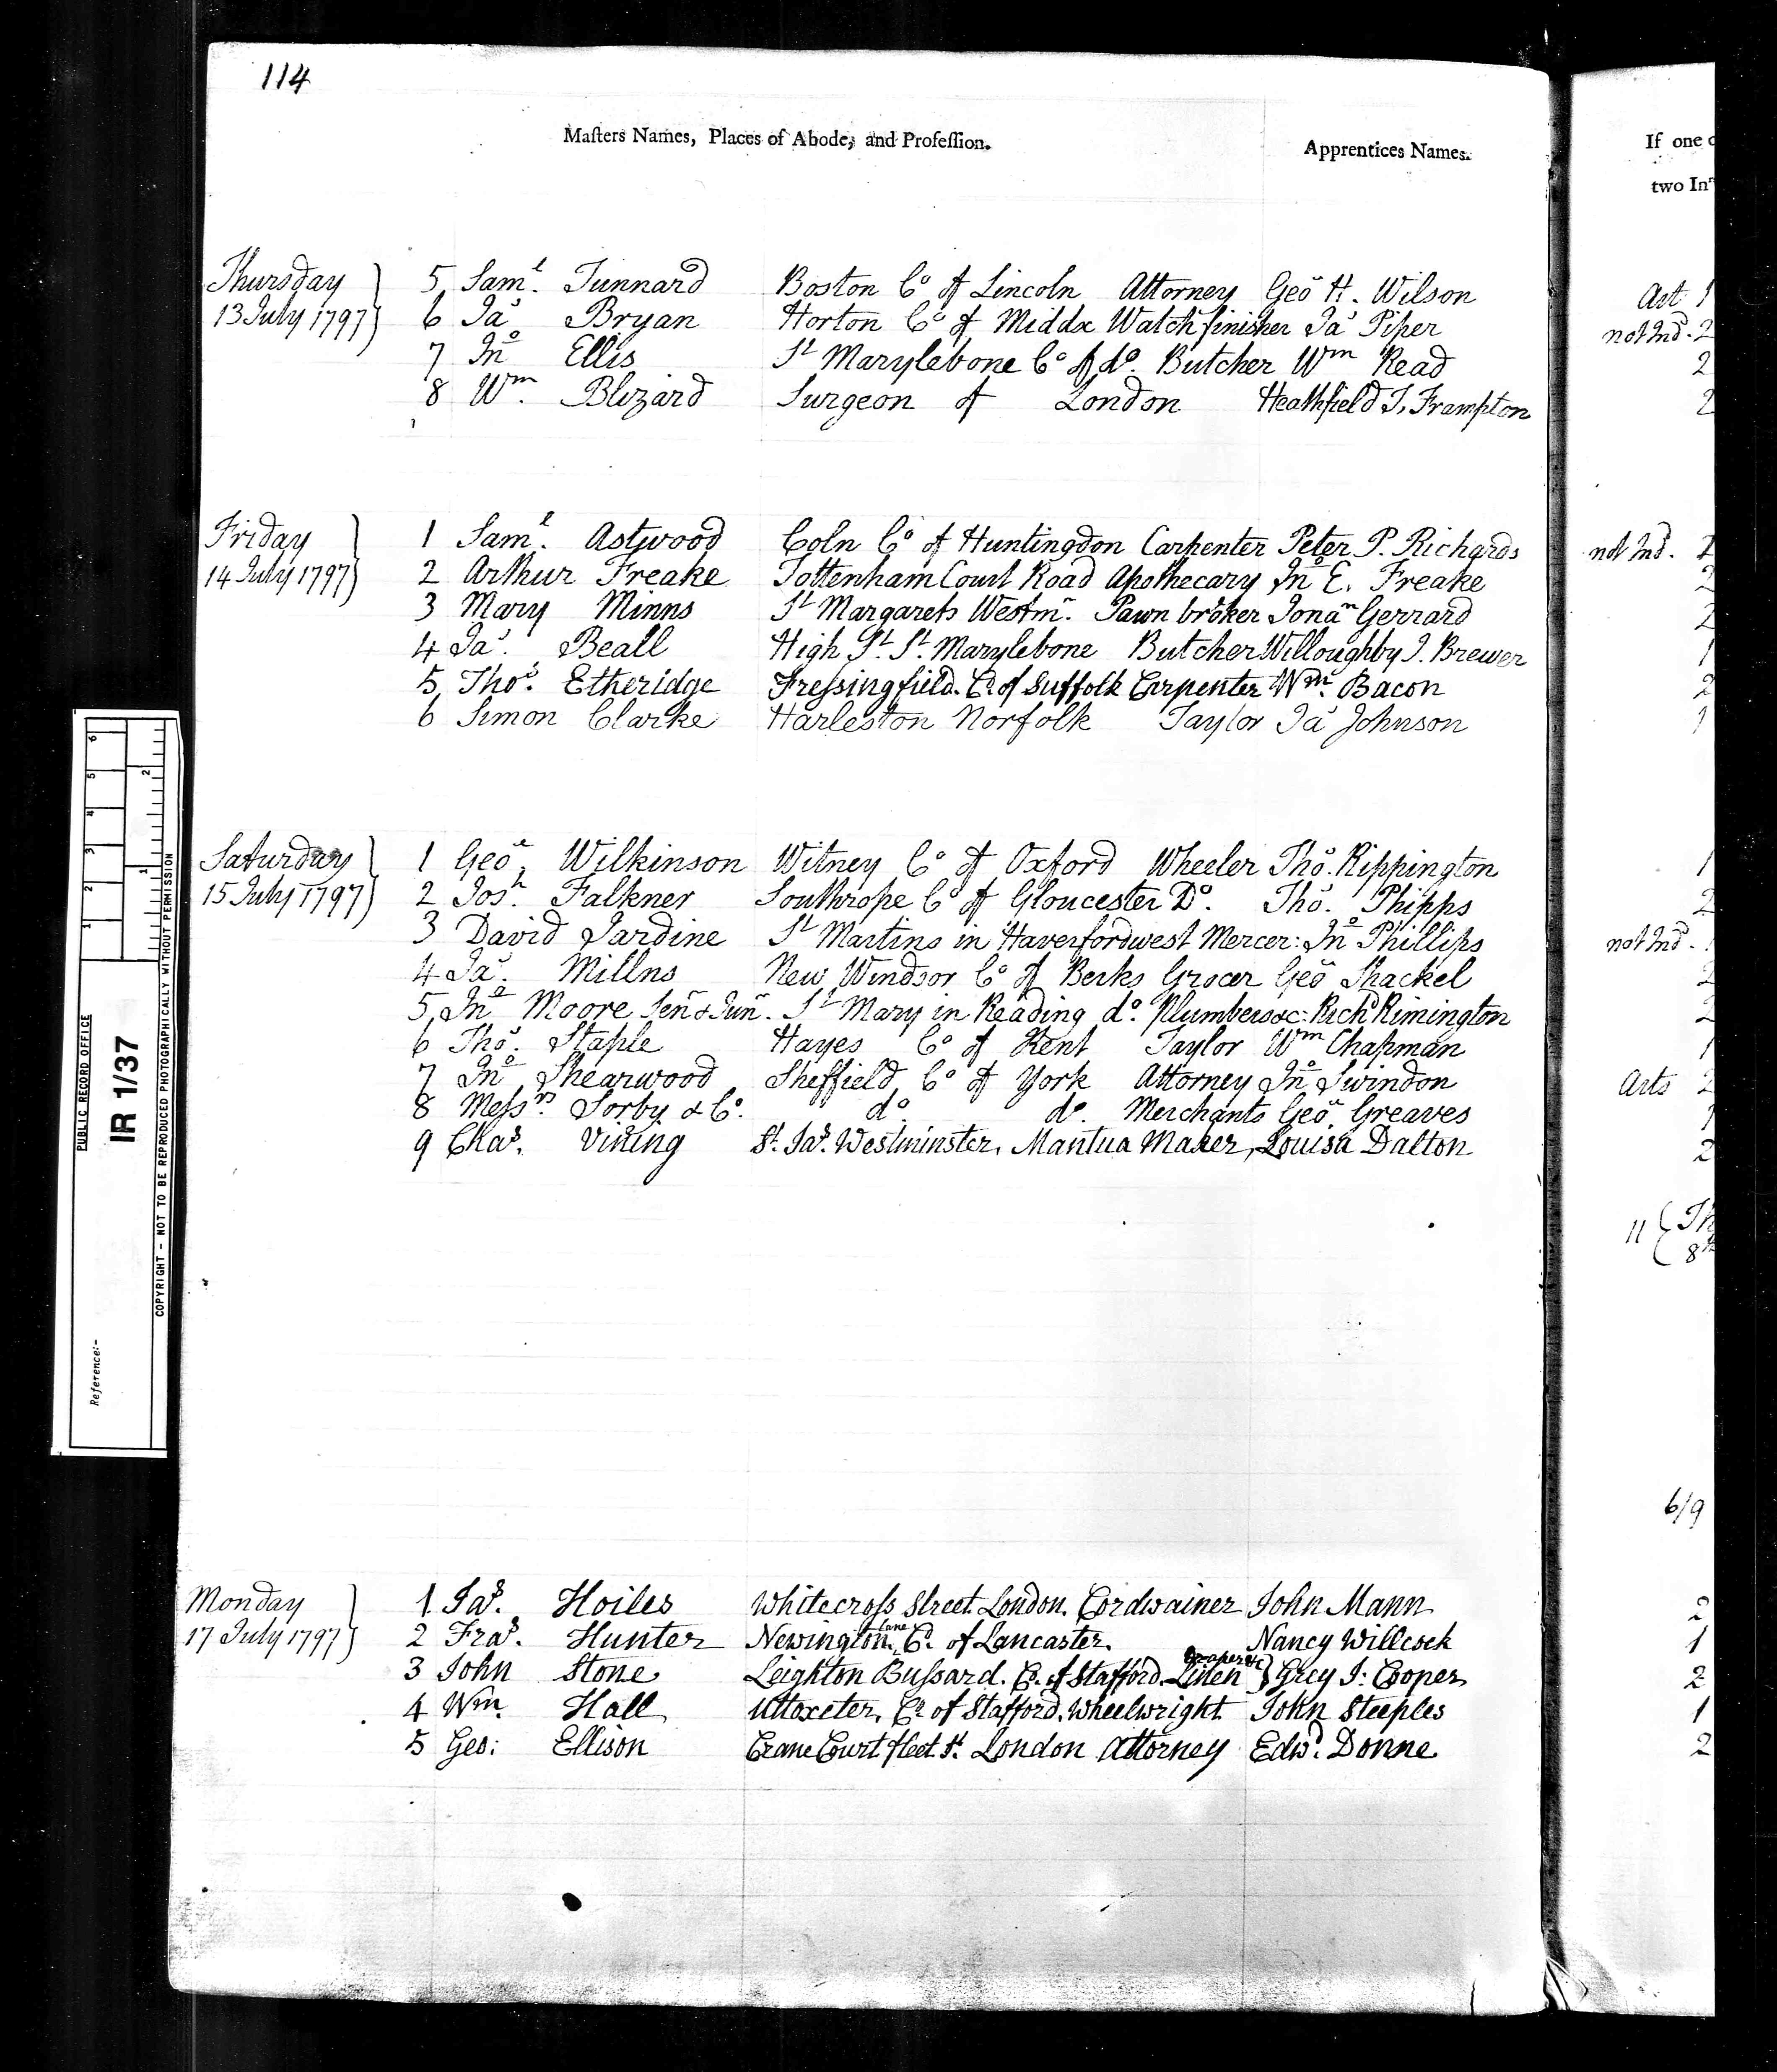 114
Masters Names, Places of Abode, and Profession. Apprentices Names.
If one
two In
Thursday 5 Saml. Tunnard Boston Co of Lincoln Attorney Geo H. Wilson Art 1
13 July 1797 6 Jas Bryan Horton Co of Middx Watch finisher Jas Piper not Ind. 2
7 Jno Ellis St Marylebone Co of do. Butcher Wm Read 2
8 Wm. Blizard Surgeon of London Heathfield J. Frampton 2
Friday 1 Saml. Astwood Coln Co of Huntingdon Carpenter Peter P. Richards not Ind. 2
14 July 1797 2 Arthur Freake Tottenham Court Road Apothecary Jno E. Freake 2
3 Mary Minns St Margarets Westmr. Pawn broker Jonan Gerrard 2
4 Jas. Beall High St. St. Marylebone Butcher Willoughby J. Brewer 1
5 Thos. Etheridge Fressingfield. Co. of Suffolk Carpenter Wm. Bacon 2
6 Simon Clarke Harleston Norfolk Taylor Jas Johnson 1
Saturday 1 Geo. Wilkinson Witney Co of Oxford Wheeler Tho. Rippington 1
15 July 1797 2 Josh. Falkner Southrope Co of Gloucester Do. Tho. Phipps 2
3 David Jardine St Martins in Haverfordwest Mercer: Jno Phillips not Ind.
4 Jas. Millns New Windsor Co of Berks Grocer Geo Shackel 2
5 Jno Moore Senr & Junr. St Mary in Reading do. Plumbers &c: Richd Rimington 2
6 Thos. Staple Hayes Co of Kent Taylor Wm Chapman 1
7 Jno Shearwood Sheffield Co of York Attorney Jno Swindon Arts 2
8 Messrs. Sorby & Co. do do. Merchants Geo. Greaves 1
9 Chas. Vining St. Jas. Westminster, Mantua Maker, Louisa Dalton 2
11
6/9
Monday 1 Jas. Hoiles Whitecross Street London. Cordwainer John Mann 2
17 July 1797 2 Fras. Hunter Newington Lane Co. of Lancaster. Nancy Willcock 1
3 John Stone Leighton Bussard. Co. of Stafford. Linen Draper &c Grey J: Cooper 2
4 Wm. Hall Uttoxeter, Co. of Stafford, Wheelwright John Steeples 1
5 Geo: Ellison Crane Court fleet St. London Attorney Edwd. Donne 2
PUBLIC RECORD OFFICE
IR 1/37
Reference:-
COPYRIGHT - NOT TO BE REPRODUCED PHOTOGRAPHICALLY WITHOUT PERMISSION
1 2 3 4 5 6
1 2